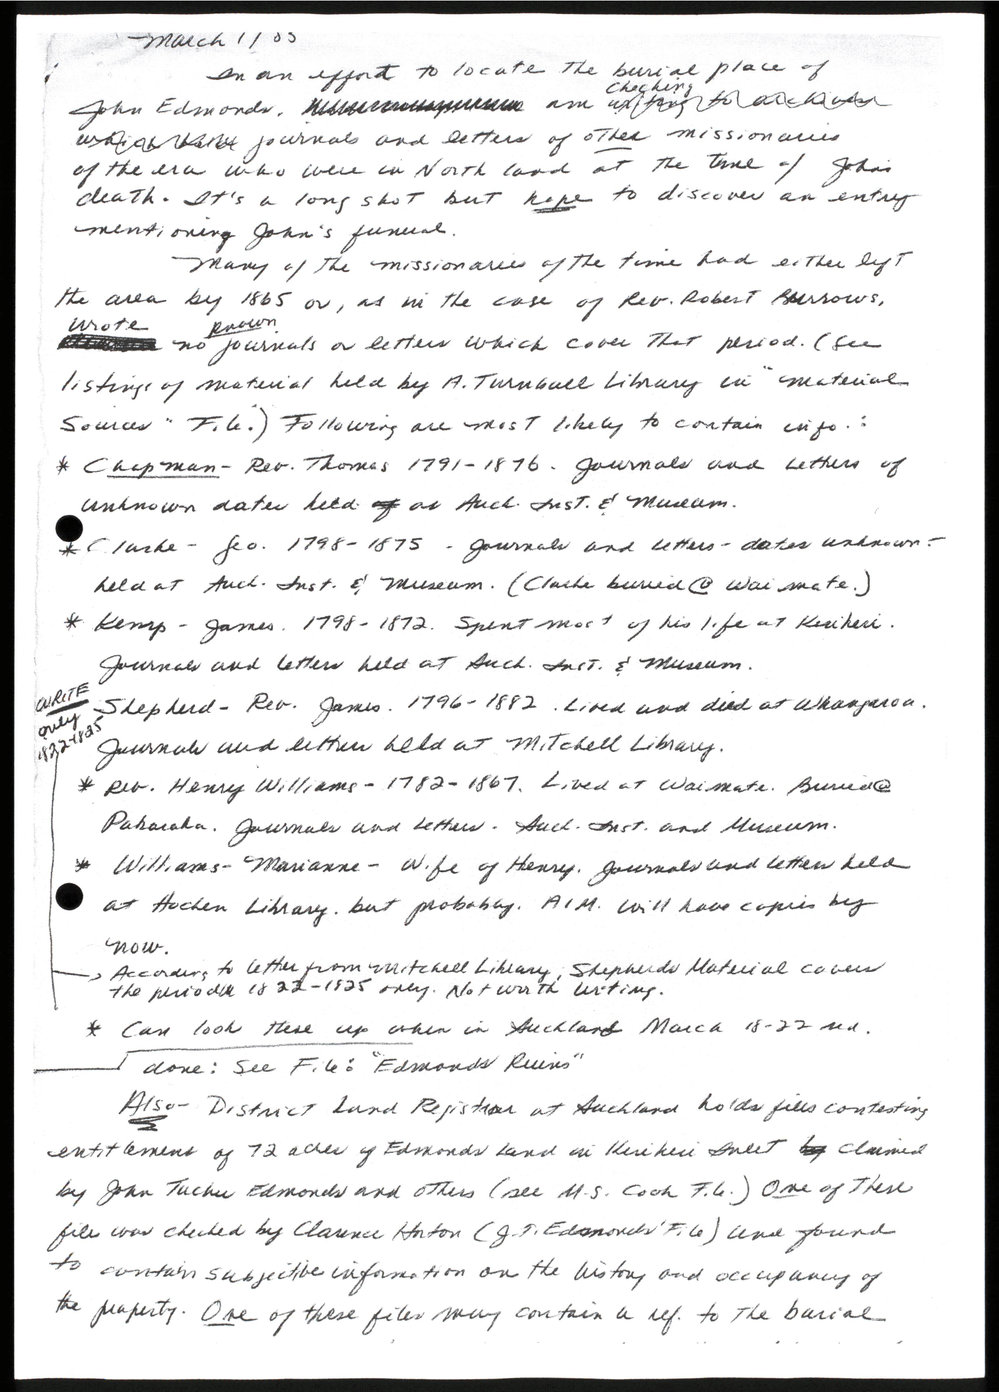 March 1/83
In an effort to locate the burial place of
John Edmonds, am checking
journals and letters of other missionaries
of the era who were in North land at the time of John's
death. It's a long shot but hope to discover an entry
mentioning John's funeral.
Many of the missionaries of the time had either left
the area by 1865 or, as in the case of Rev. Robert Burrows,
wrote no known journals or letters which cover that period. (See
listings of material held by A. Turnbull Library in "Material
Sources" File.) Following are most likely to contain info.:
* Chapman - Rev. Thomas 1791-1876. Journals and letters of
unknown dates held at Auck. Inst. & Museum.
* Clarke - Geo. 1798-1875 - Journals and letters - dates unknown -
held at Auck. Inst. & Museum. (Clarke buried @ Waimate.)
* Kemp - James. 1798-1872. Spent most of his life at Kerikeri.
Journals and letters held at Auck. Inst. & Museum.
Shepherd - Rev. James. 1796-1882. Lived and died at Whangaroa.
WRITE
only
1822-1825
Journals and letters held at Mitchell Library.
* Rev. Henry Williams - 1782-1867. Lived at Waimate. Buried @
Pakaraka. Journals and letters - Auck. Inst. and Museum.
* Williams - Marianne - Wife of Henry. Journals and letters held
at Hocken Library. but probabay. A.I.M. will have copies by
now.
According to letter from Mitchell Library, Shepherds Material covers
the period 1822-1825 only. Not worth writing.
* Can look these up when in Auckland March 18-22 nd.
done: See File: "Edmonds Ruins"
Also - District Land Registrar at Auckland holds files contesting
entitlement of 72 acres of Edmonds Land in Kerikeri Inlet claimed
by John Tucker Edmonds and others (see M.S. Cook File.) One of these
files was checked by Clarence Horton (J.T. Edmonds' File) and found
to contain subjective information on the history and occupancy of
the property. One of these files may contain a ref. to the burial